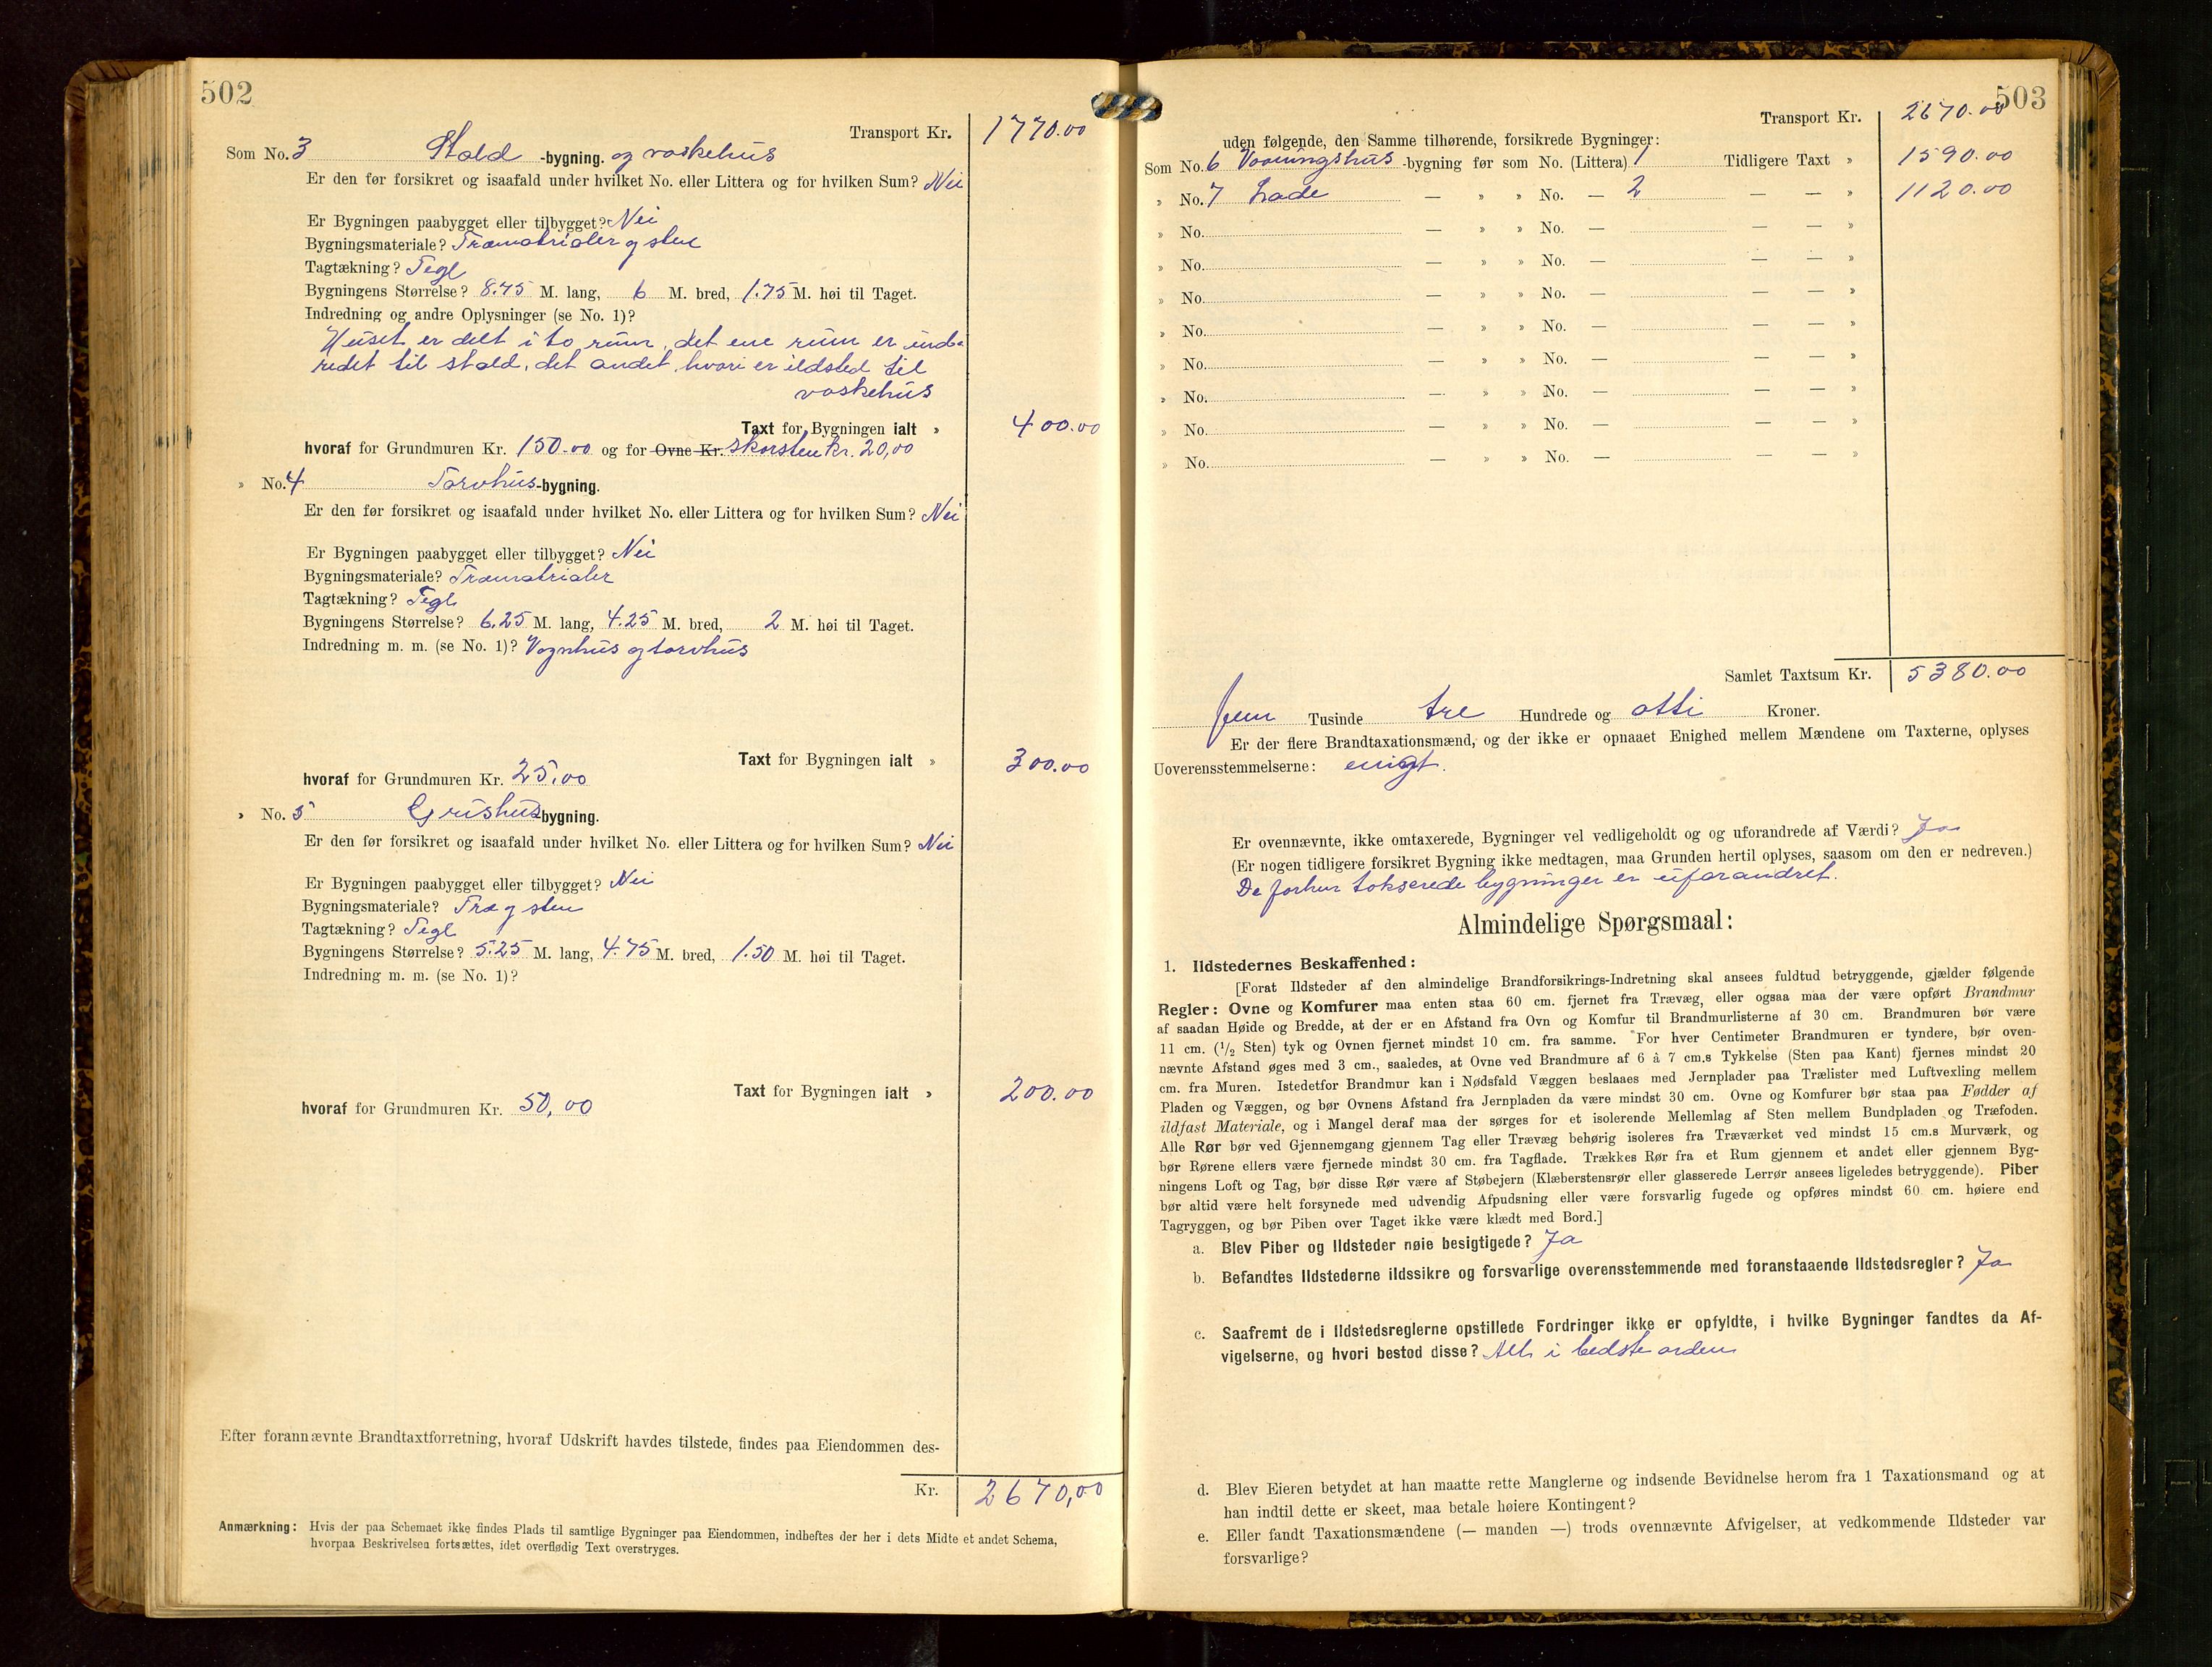 502
Transport Kr. 1770.00
Som No. 3 Stald -bygning. og vaskehus
Er den før forsikret og isaafald under hvilket No. eller Littera og for hvilken Sum? Nei
Er Bygningen paabygget eller tilbygget? Nei
Bygningsmateriale? Træmatrialer og sten
Tagtækning? Tegl
Bygningens Størrelse? 8.75 M. lang, 6 M. bred, 1.75 M. høi til Taget.
Indredning og andre Oplysninger (se No. 1)?
Huset er delt i to rum, det ene rum er ind-
redet til stald, det andet, hvori er ildsted til
vaskehus
Taxt for Bygningen ialt » 400.00
hvoraf for Grundmuren Kr. 150.00 og for Ovne Kr. skorsten kr. 20,00
» No. 4 Torvhus-bygning.
Er den før forsikret og isaafald under hvilket No. eller Littera og for hvilken Sum? Nei
Er Bygningen paabygget eller tilbygget? Nei
Bygningsmateriale? Træmatrialer
Tagtækning? Tegl
Bygningens Størrelse? 6.25 M. lang, 4.25 M. bred, 2 M. høi til Taget.
Indredning m. m. (se No. 1)? Vognhus og torvhus
Taxt for Bygningen ialt » 300.00
hvoraf for Grundmuren Kr. 25.00
» No. 5 Grishus bygning.
Er den før forsikret og isaafald under hvilket No. eller Littera og for hvilken Sum? Nei
Er Bygningen paabygget eller tilbygget? Nei
Bygningsmateriale? Træ og sten
Tagtækning? Tegl
Bygningens Størrelse? 5.25 M. lang, 4.75 M. bred, 1.50 M. høi til Taget.
Indredning m. m. (se No. 1)?
Taxt for Bygningen ialt » 200.00
hvoraf for Grundmuren Kr. 50,00
Efter forannævnte Brandtaxtforretning, hvoraf Udskrift havdes tilstede, findes paa Eiendommen des-
Kr. 2670,00
Anmærkning: Hvis der paa Schemaet ikke findes Plads til samtlige Bygninger paa Eiendommen, indheftes der her i dets Midte et andet Schema,
hvorpaa Beskrivelsen fortsættes, idet overflødig Text overstryges.
503
Transport Kr. 2670.00
uden følgende, den Samme tilhørende, forsikrede Bygninger:
Som No. 6 Vaaningshus -bygning før som No. (Littera) 1 Tidligere Taxt » 1590.00
» No. 7 Lade — » » No. — 2 — — » 1120.00
» No. — » » No. — — — »
» No. — » » No. — — — »
» No. — » » No. — — — »
» No. — » » No. — — — »
» No. — » » No. — — — »
» No. — » » No. — — — »
» No. — » » No. — — — »
» No. — » » No. — — — »
Samlet Taxtsum Kr. 5380.00
fem Tusinde tre Hundrede og otti Kroner.
Er der flere Brandtaxationsmænd, og der ikke er opnaaet Enighed mellem Mændene om Taxterne, oplyses
Uoverensstemmelserne: enigt.
Er ovennævnte, ikke omtaxerede, Bygninger vel vedligeholdt og og uforandrede af Værdi? Ja
(Er nogen tidligere forsikret Bygning ikke medtagen, maa Grunden hertil oplyses, saasom om den er nedreven.)
De forhen takserede bygninger er uforandret.
Almindelige Spørgsmaal:
1. Ildstedernes Beskaffenhed:
[Forat Ildsteder af den almindelige Brandforsikrings-Indretning skal ansees fuldtud betryggende, gjælder følgende
Regler: Ovne og Komfurer maa enten staa 60 cm. fjernet fra Trævæg, eller ogsaa maa der være opført Brandmur
af saadan Høide og Bredde, at der er en Afstand fra Ovn og Komfur til Brandmurlisterne af 30 cm. Brandmuren bør være
11 cm. (1/2 Sten) tyk og Ovnen fjernet mindst 10 cm. fra samme. For hver Centimeter Brandmuren er tyndere, bør oven-
nævnte Afstand øges med 3 cm., saaledes, at Ovne ved Brandmure af 6 à 7 cm.s Tykkelse (Sten paa Kant) fjernes mindst 20
cm. fra Muren. Istedetfor Brandmur kan i Nødsfald Væggen beslaaes med Jernplader paa Trælister med Luftvexling mellem
Pladen og Væggen, og bør Ovnens Afstand fra Jernpladen da være mindst 30 cm. Ovne og Komfurer bør staa paa Fødder af
ildfast Materiale, og i Mangel deraf maa der sørges for et isolerende Mellemlag af Sten mellem Bundpladen og Træfoden.
Alle Rør bør ved Gjennemgang gjennem Tag eller Trævæg behørig isoleres fra Træværket ved mindst 15 cm.s Murværk, og
bør Rørene ellers være fjernede mindst 30 cm. fra Tagflade. Trækkes Rør fra et Rum gjennem et andet eller gjennem Byg-
ningens Loft og Tag, bør disse Rør være af Støbejern (Klæberstensrør eller glasserede Lerrør ansees ligeledes betryggende). Piber
bør altid være helt forsynede med udvendig Afpudsning eller være forsvarlig fugede og opføres mindst 60 cm. høiere end
Tagryggen, og bør Piben over Taget ikke være klædt med Bord.]
a. Blev Piber og Ildsteder nøie besigtigede? Ja
b. Befandtes Ildstederne ildssikre og forsvarlige overensstemmende med foranstaaende Ildstedsregler? Ja
c. Saafremt de i Ildstedsreglerne opstillede Fordringer ikke er opfyldte, i hvilke Bygninger fandtes da Af-
vigelserne, og hvori bestod disse? Alt i bedste orden
d. Blev Eieren betydet at han maatte rette Manglerne og indsende Bevidnelse herom fra 1 Taxationsmand og at
han indtil dette er skeet, maa betale høiere Kontingent?
e. Eller fandt Taxationsmændene (— manden —) trods ovennævnte Afvigelser, at vedkommende Ildsteder var
forsvarlige?